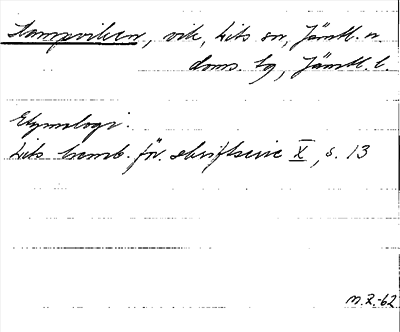 Kampviken, vik, Lits sn, Jämtl. n
doms. hg, Jämtl. l.
Etymologi.
Lits hemb. för. skriftserie X, s. 13
M.Z.-62